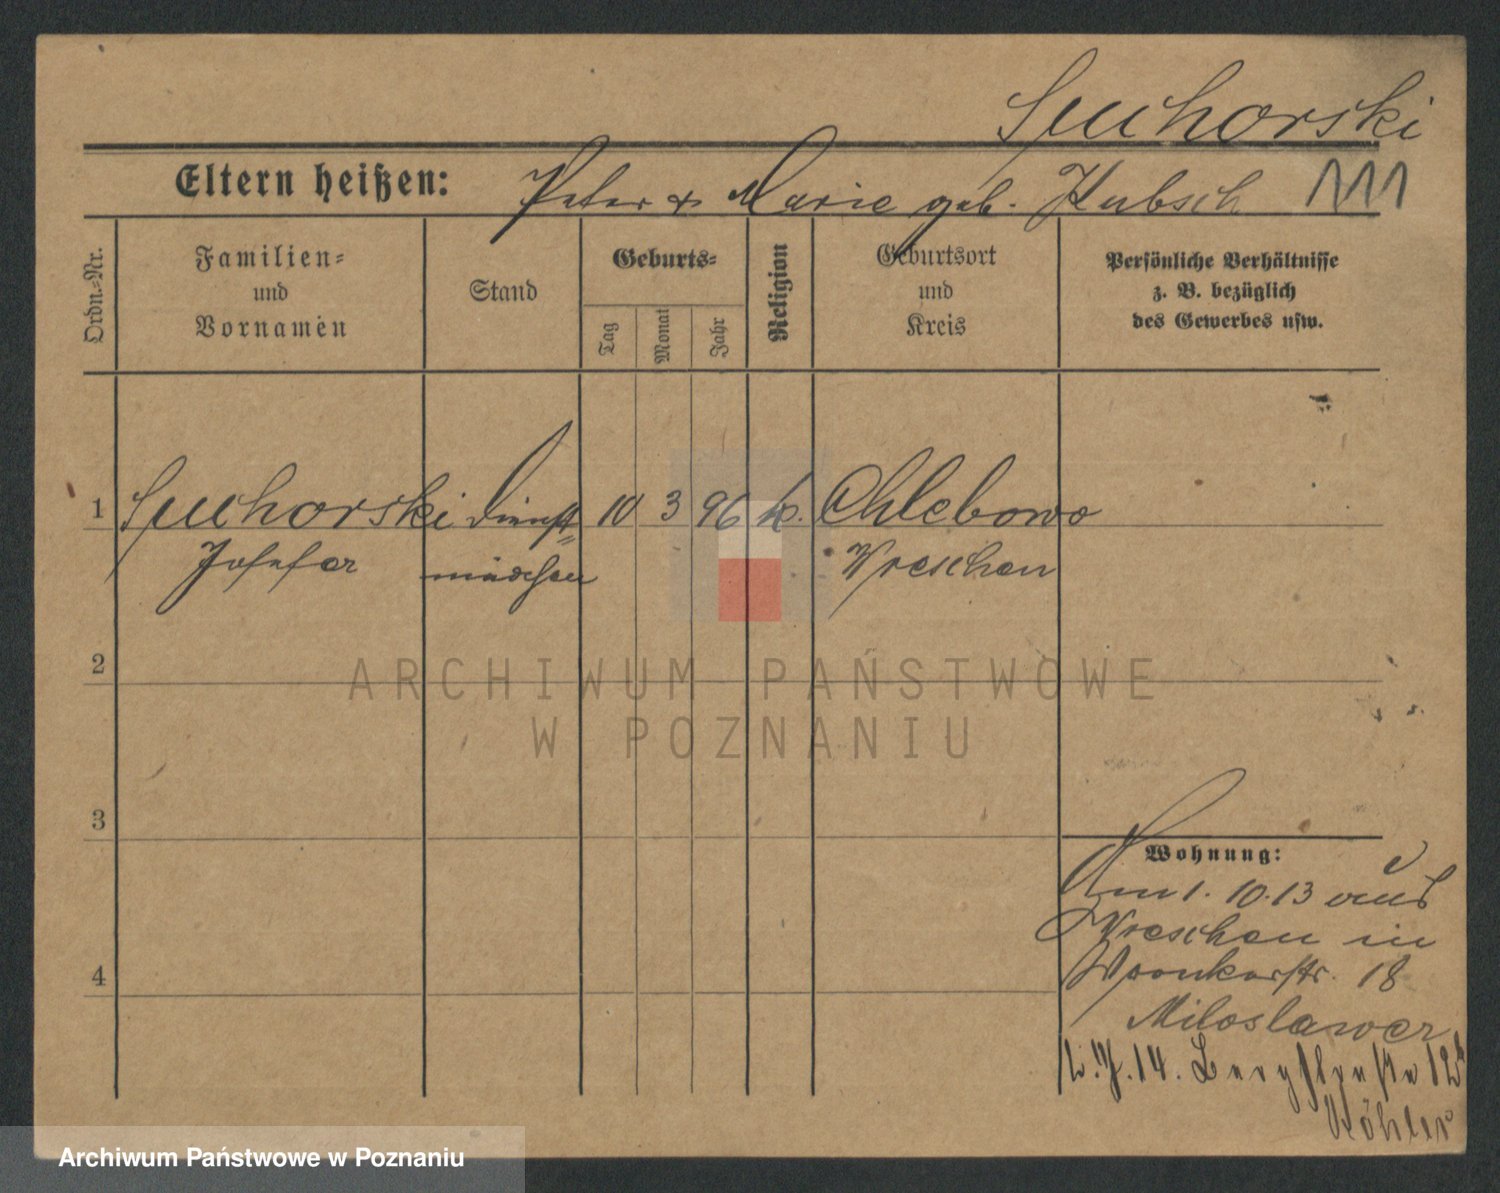 Suchorski
Eltern heißen: Peter & Marie geb. Kubsch
Ordn.-Nr.
Familien-
und
Vornamen
Stand
Geburts-
Tag
Monat
Jahr
Religion
Geburtsort
und
Kreis
Persönliche Verhältnisse
z. B. bezüglich
des Gewerbes usw.
1 Suchorski Dienst= 10 3 96 k. Chlebowo
Josefa mädchen Wreschen
2
3
4
Wohnung:
Am 1. 10. 13 aus
Wreschen in
Wronkerstr. 18
Miloslawer
2. 7. 14. Bergstraße 12b
Köhler
ARCHIWUM PAŃSTWOWE
W POZNANIU
Archiwum Państwowe w Poznaniu